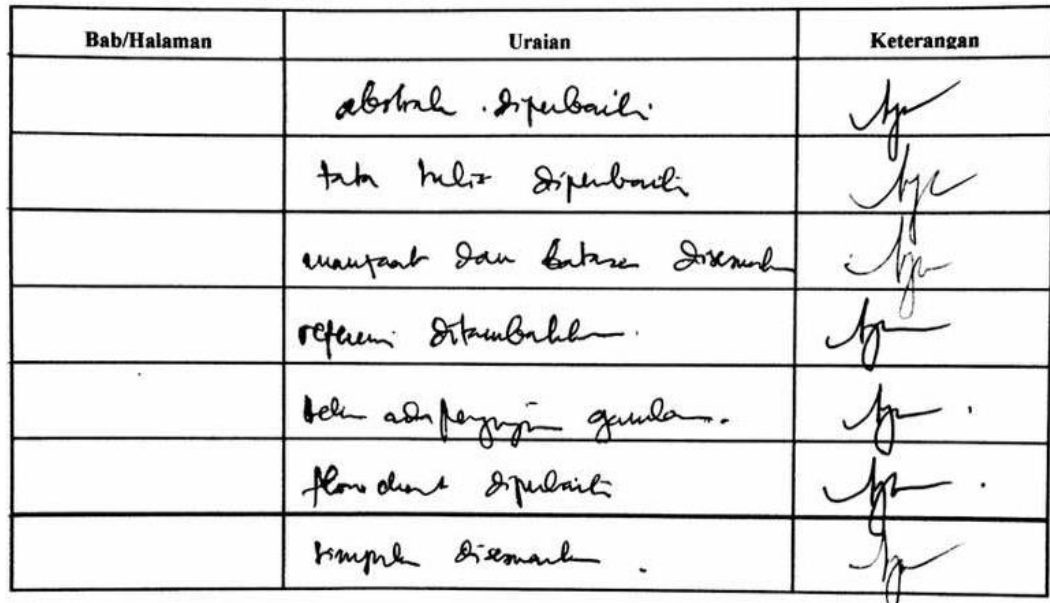 Bab/Halaman Uraian Keterangan
abstrak diperbaiki
tata tulis diperbaiki
manfaat dan batasan disesuaikan
referensi ditambahkan.
belum ada pengujian
flowchart diperbaiki
simpulan disesuaikan.